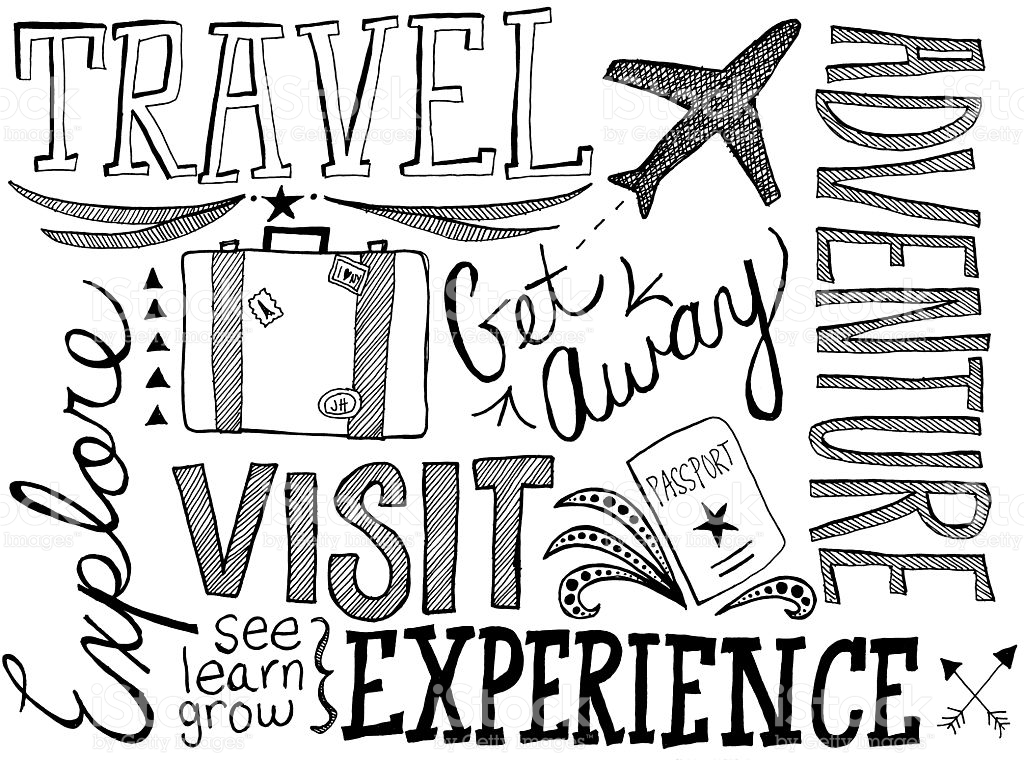 TRAVEL
ADVENTURE
I ♥ NY
JH
Get
Away
Explore
VISIT
PASSPORT
see
learn
grow
EXPERIENCE
iStock
by Getty Images™